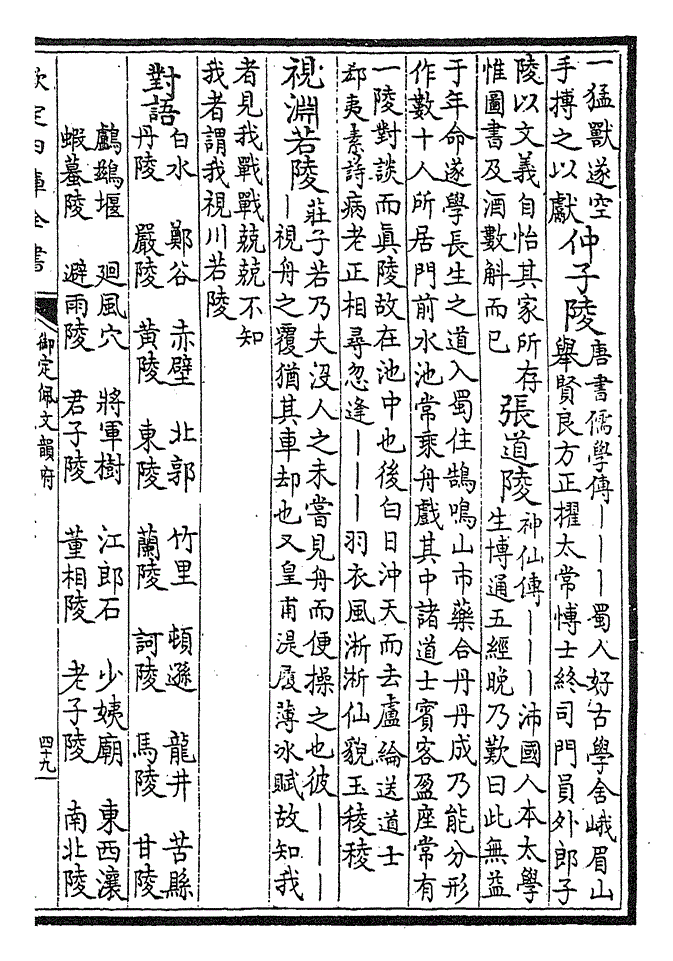 一猛獸遂空
手搏之以獻
仲子陵
唐書儒學傳｜｜｜蜀人好古學舍峨眉山
舉賢良方正擢太常博士終司門員外郎子
陵以文義自怡其家所存
惟圖書及酒數斛而已
張道陵
神仙傳｜｜｜沛國人本太學
生博通五經晚乃歎曰此無益
于年命遂學長生之道入蜀住鵠鳴山市藥合丹丹成乃能分形
作數十人所居門前水池常乘舟戲其中諸道士賓客盈座常有
一陵對談而眞陵故在池中也後白日沖天而去盧綸送道士
郄夷素詩病老正相尋忽逢｜｜｜羽衣風淅淅仙貌玉稜稜
視淵若陵
莊子若乃夫沒人之未嘗見舟而便操之也彼｜｜｜
｜視舟之覆猶其車却也又皇甫湜履薄冰賦故知我
者見我戰戰兢兢不知
我者謂我視川若陵
對語
白水 鄭谷 赤壁 北郭 竹里 頓遜 龍井 苦縣
丹陵 嚴陵 黃陵 東陵 蘭陵 訶陵 馬陵 甘陵
鸕鷀堰 廻風穴 將軍樹 江郎石 少姨廟 東西瀼
蝦蟇陵 避雨陵 君子陵 董相陵 老子陵 南北陵
欽定四庫全書
御定佩文韻府
四十九